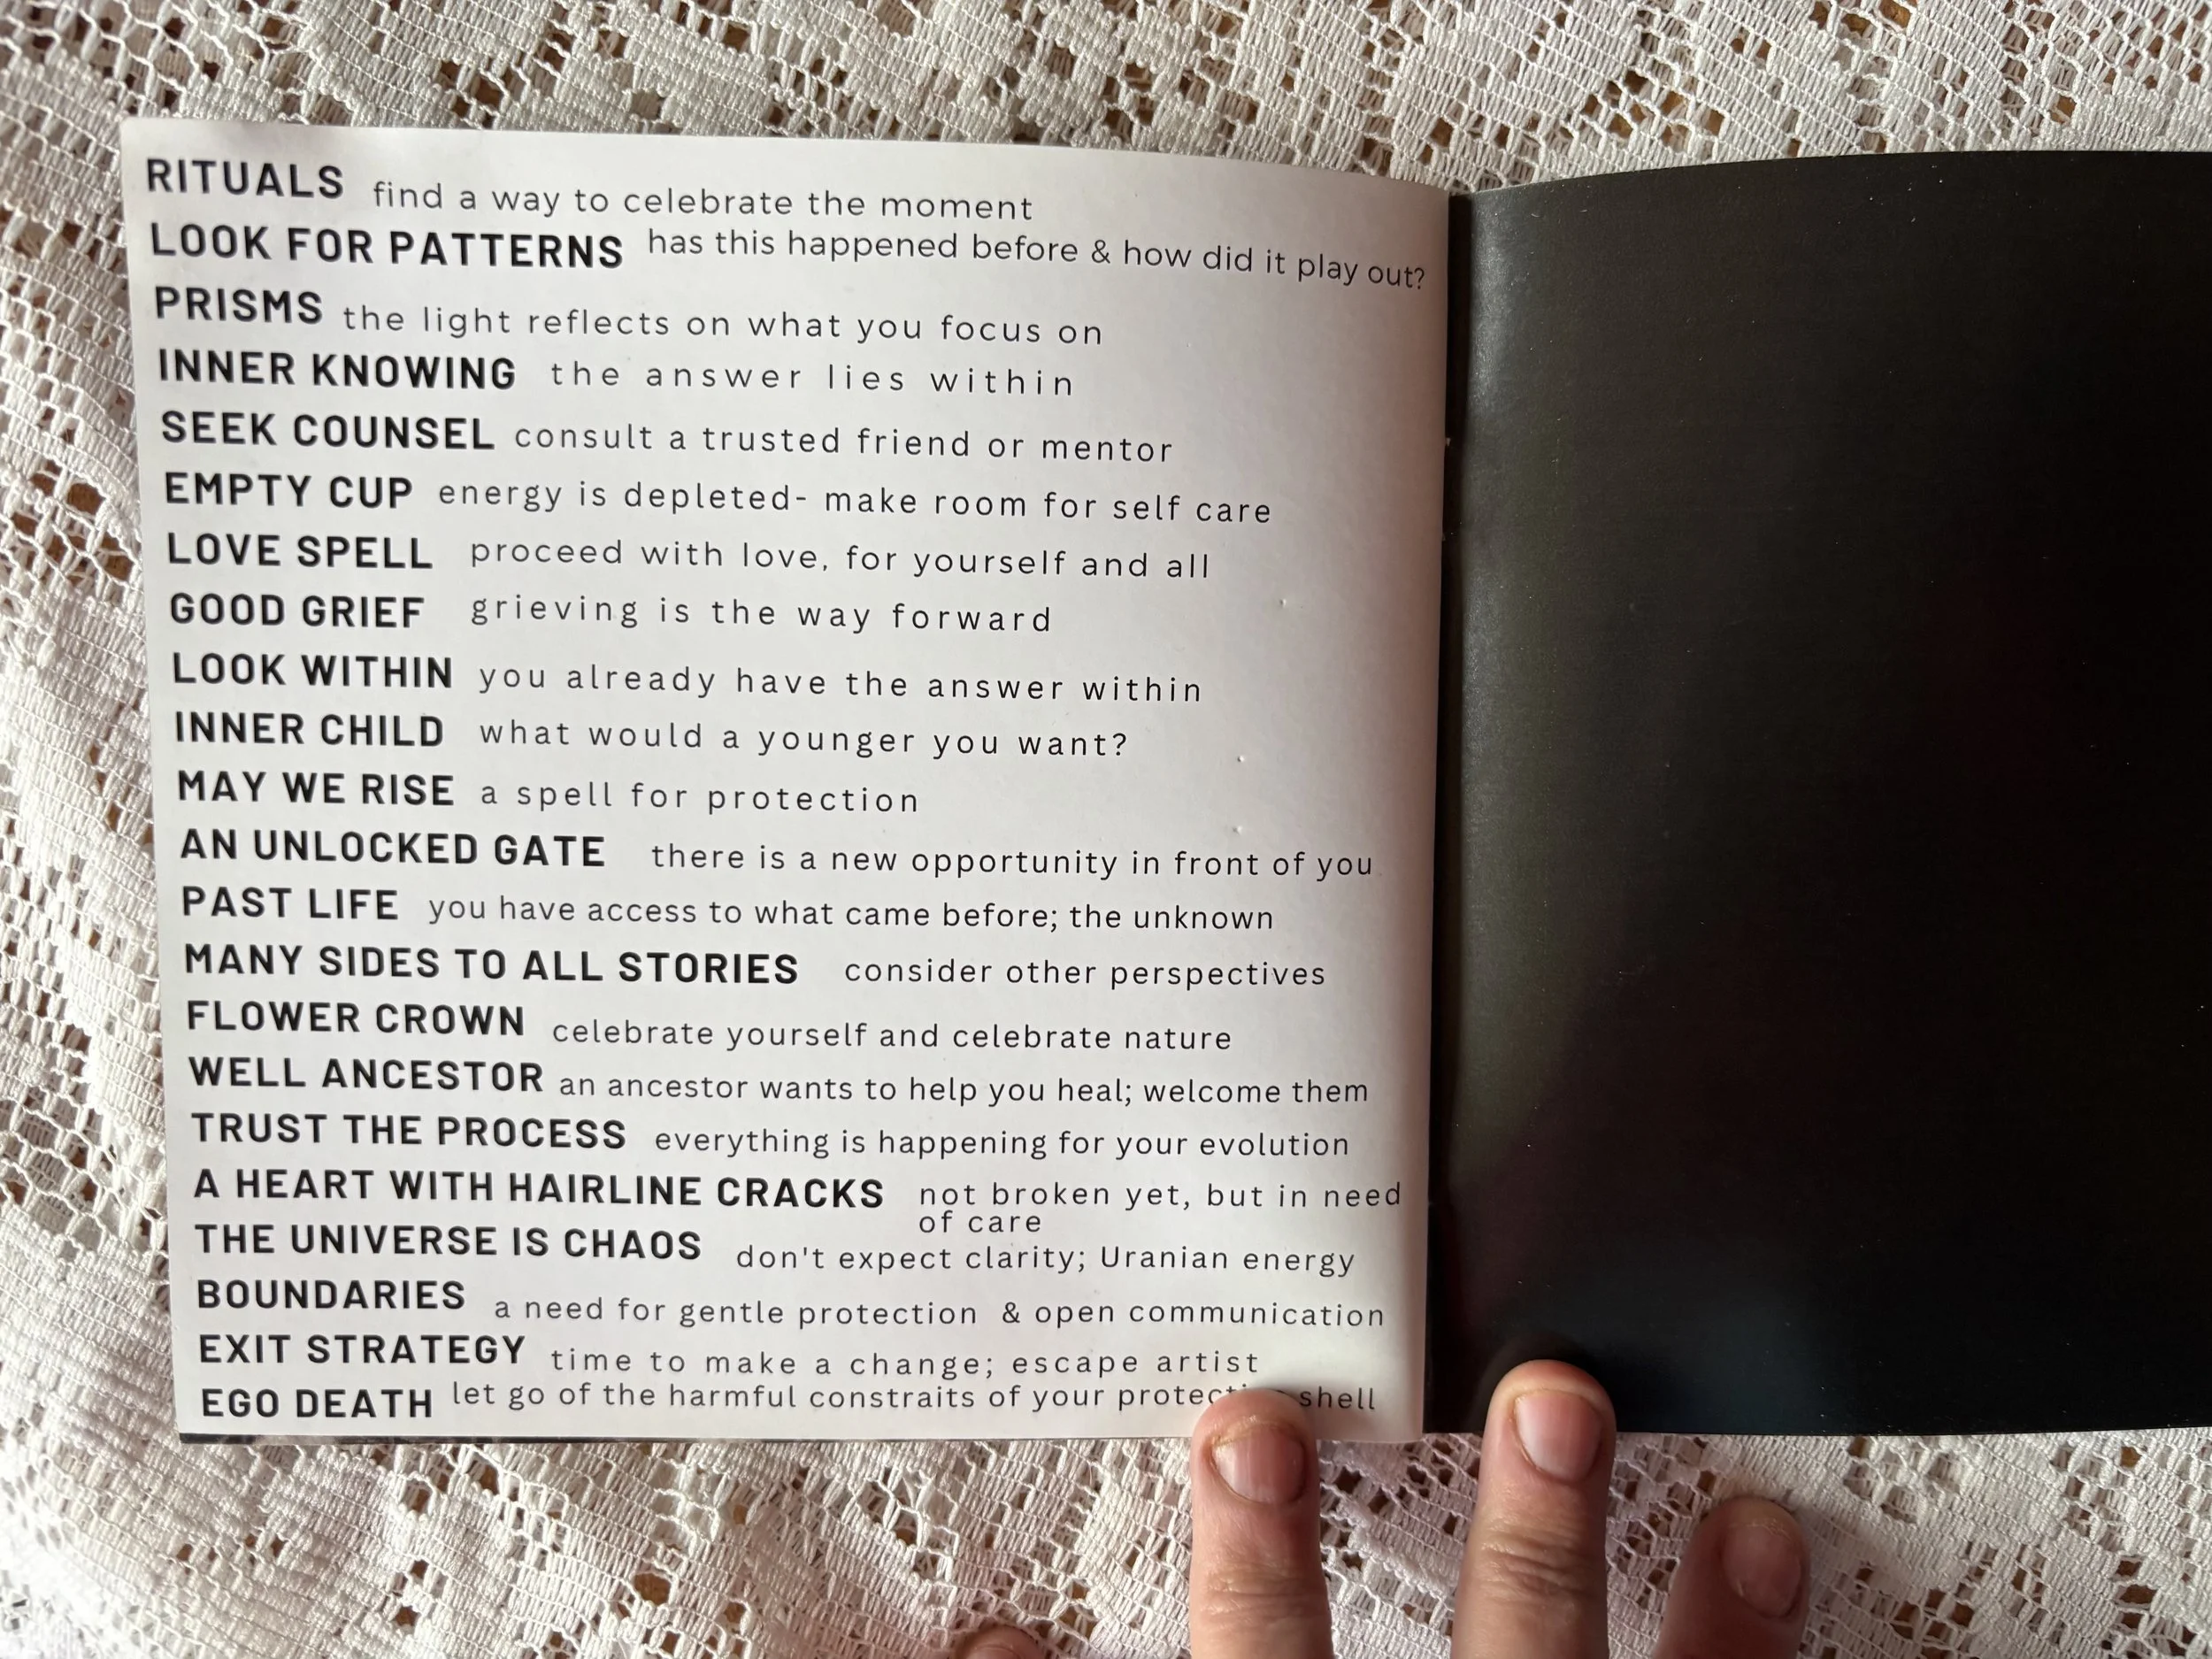 RITUALS find a way to celebrate the moment
LOOK FOR PATTERNS has this happened before & how did it play out?
PRISMS the light reflects on what you focus on
INNER KNOWING the answer lies within
SEEK COUNSEL consult a trusted friend or mentor
EMPTY CUP energy is depleted- make room for self care
LOVE SPELL proceed with love, for yourself and all
GOOD GRIEF grieving is the way forward
LOOK WITHIN you already have the answer within
INNER CHILD what would a younger you want?
MAY WE RISE a spell for protection
AN UNLOCKED GATE there is a new opportunity in front of you
PAST LIFE you have access to what came before; the unknown
MANY SIDES TO ALL STORIES consider other perspectives
FLOWER CROWN celebrate yourself and celebrate nature
WELL ANCESTOR an ancestor wants to help you heal; welcome them
TRUST THE PROCESS everything is happening for your evolution
A HEART WITH HAIRLINE CRACKS not broken yet, but in need
of care
THE UNIVERSE IS CHAOS don't expect clarity; Uranian energy
BOUNDARIES a need for gentle protection & open communication
EXIT STRATEGY time to make a change; escape artist
EGO DEATH let go of the harmful constraits of your shell